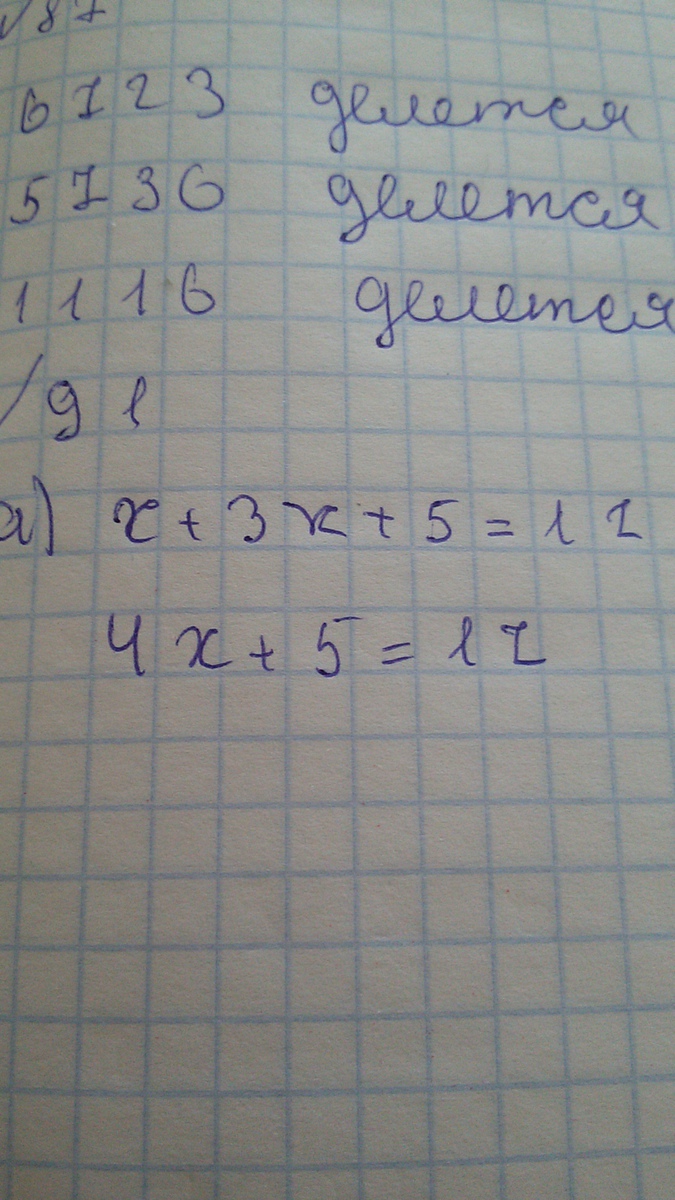 87
6723 делется
5736 делется
1116 делется
91
а) x + 3x + 5 = 17
4x + 5 = 17